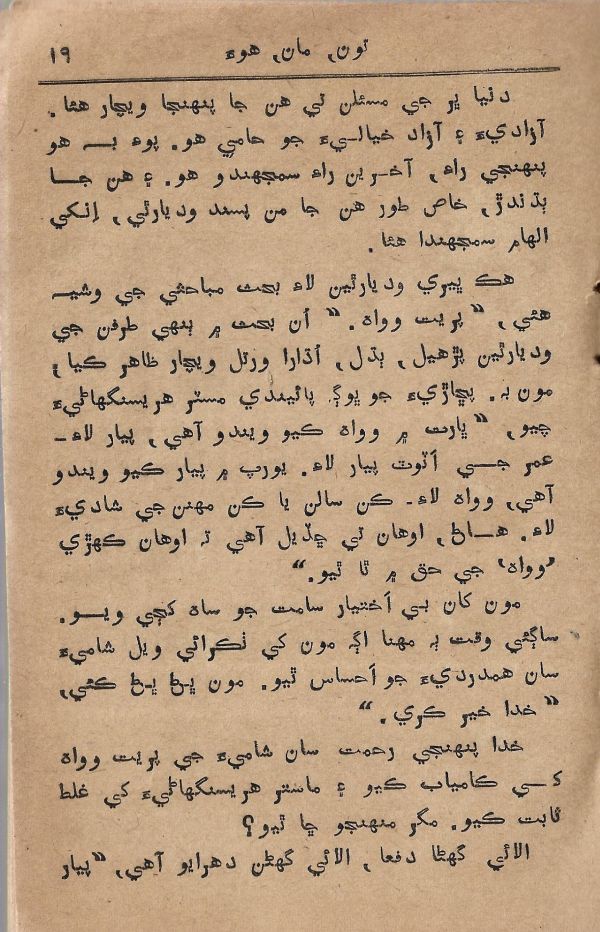 تون, مان, هوءَ ١٩
دنيا ڀر جي مسئلن تي هن جا پنهنجا ويچار هئا.
آزاديءَ ۽ آزاد خياليءَ جو حامي هو. پوءِ بہ هو
پنهنجي راءِ, آخرين راءِ سمجهندو هو. ۽ هن جا
ٻڌندڙ, خاص طور هن جا من پسند وديارٿي, اِنکي
الهام سمجهندا هئا.
هڪ ڀيري وديارٿين لاءِ بحث مباحثي جي وشيہ
هئي, ”پريت وواهہ.“ اُن بحث ۾ ٻنهي طرفن جي
وديارٿين پڙهيل, ٻڌل, اُڌارا ورتل ويچار ظاهر ڪيا,
مون بہ. پڇاڙيءَ جو ڀوڳ پائيندي مسٽر هريسنگهاڻيءَ
چيو, ”ڀارت ۾ وواهہ ڪيو ويندو آهي, پيار لاءِ-
عمر جي اَٽوٽ پيار لاءِ. يورپ ۾ پيار ڪيو ويندو
آهي, وواهہ لاءِ- ڪن سالن يا ڪن مهنن جي شاديءَ
لاءِ. هاڻ, اوهان تي ڇڏيل آهي تہ اوهان ڪهڙي
’وواهہ‘ جي حق ۾ ٿا ٿيو.“
مون کان بي اَختيار سامت جو ساهہ کڄي ويو.
ساڳئي وقت ٻہ مهنا اڳہ مون کي ٺڪرائي ويل شاميءَ
سان همدرديءَ جو اَحساس ٿيو. مون ڀڻ ڀڻ ڪئي,
”خدا خير ڪري.“
خدا پنهنجي رحمت سان شاميءَ جي پريت وواهہ
کي ڪامياب ڪيو ۽ ماستر هريسنگهاڻيءَ کي غلط
ثابت ڪيو. مگر منهنجو ڇا ٿيو؟
الائي گهڻا دفعا, الائي گهڻن دهرايو آهي, ”پيار